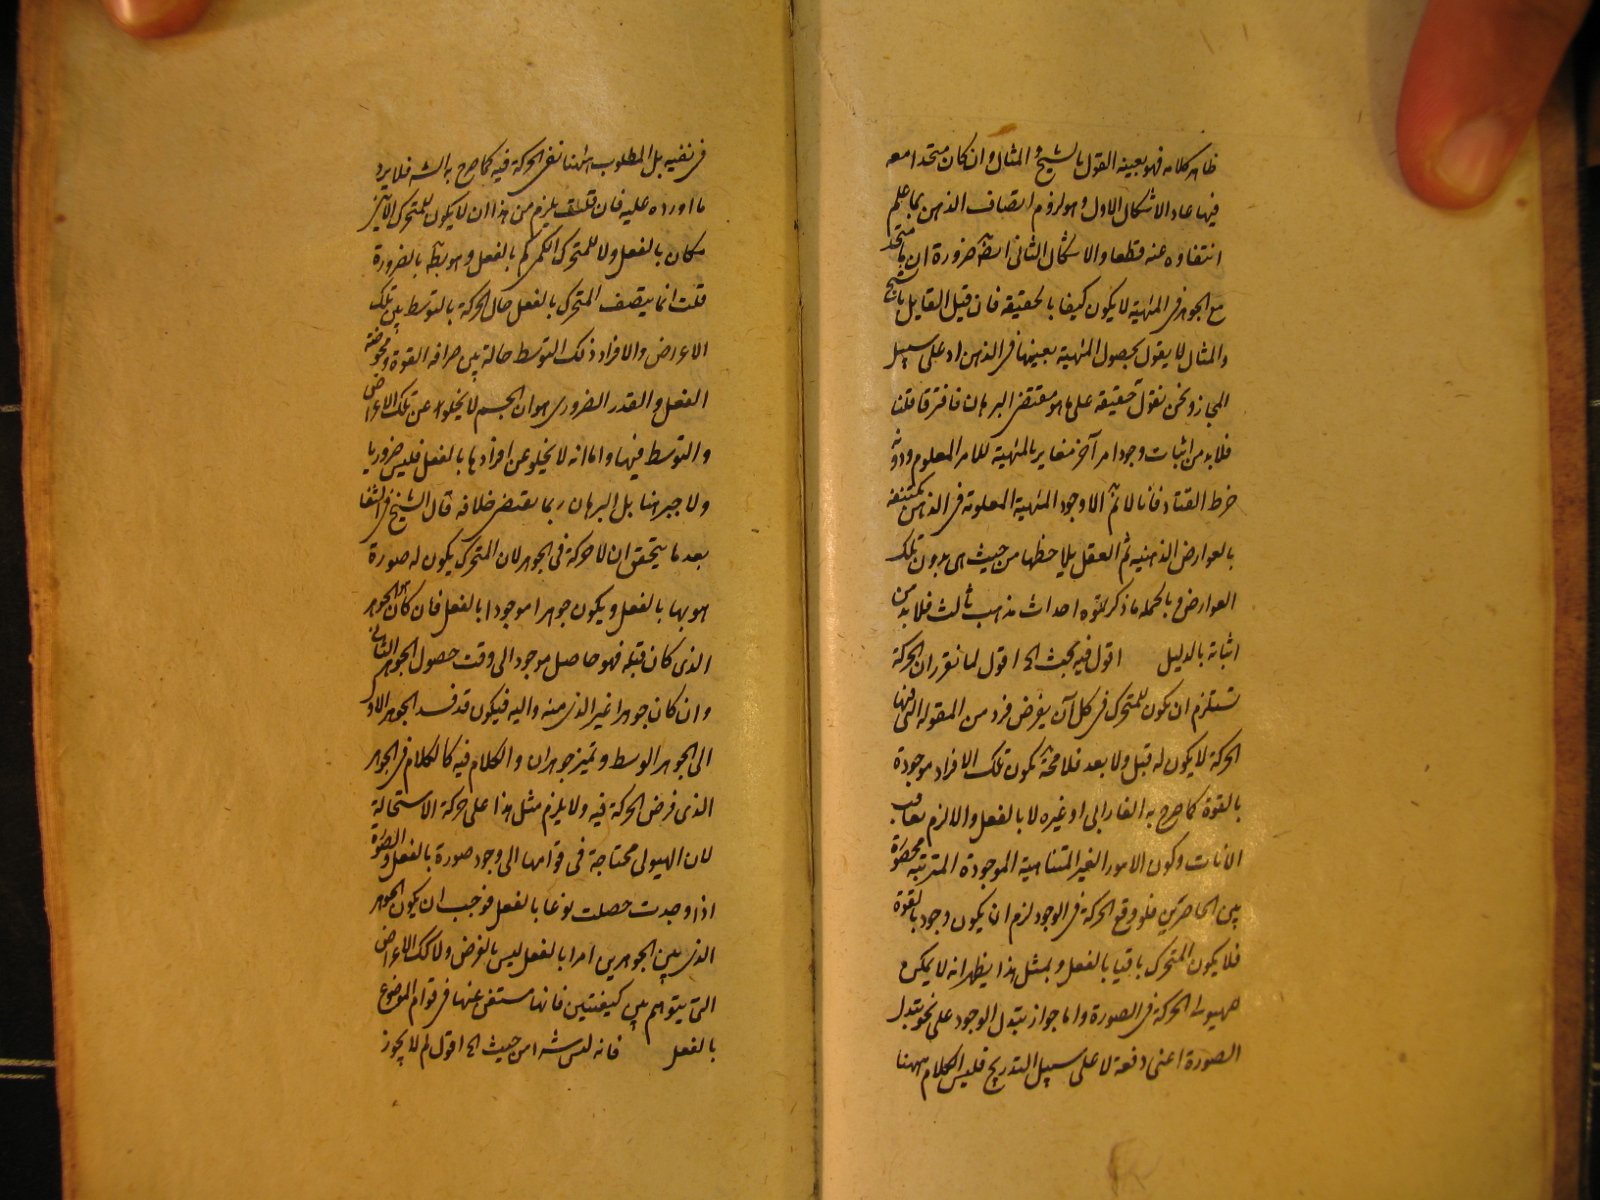 ظاهر كلامه فهو بعينه القول بالشبح و المثال وان كان متحدا معه
فيها عاد الاشكال الاول وهو لزوم اتصاف الذهن بما علم
انتفاوه عنه قطعا والاشكال الثاني ايضا ضرورة ان المتحد
مع الجوهر في المهية لا يكون كيفا بالحقيقة فان قيل القايل بالشبح
والمثال لا يقول بحصول المهية بعينها في الذهن او على سبيل
المجاز ونحن نقول حقيقة على ما هو مقتضى البرهان فافترقا قلنا
فلابد من اثبات وجود امر آخر مغاير بالمهية للامر المعلوم ودونه
خرط القتاد فانا لا نم الا وجود المهية المعلومة في الذهن مكتنفة
بالعوارض الذهنية ثم العقل يلاحظها من حيث هي بدون تلك
العوارض وبالجملة ما ذكر لقوه احداث مذهب ثالث فلابد من
اثباته بالدليل اقول فيه بحث الخ اقول لما تقرر ان الحركة
تستلزم ان يكون للمتحرك في كل آن يفرض فرد من المقولة التي فيها
الحركة لا يكون له قبل ولا بعد فلا محة تكون تلك الافراد موجودة
بالقوة كما صرح به الفارابي او غيره لا بالفعل والا لزم تعاقب
الانات وكون الامور الغير المتناهية الموجودة المترتبة محصورة
بين الحاصرين فلو وقع الحركة في الوجود لزم ان يكون وجود بالقوة
فلا يكون المتحرك باقيا بالفعل وبمثل هذا يظهر انه لا يمكن
للهيولى الحركة في الصورة واما جواز تبدل الوجود على نحو تبدل
الصورة اعني دفعة لا على سبيل التدريج فليس الكلام ههنا
في نفيه بل المطلوب ههنا نفي الحركة فيه كما صرح به الش فلا يرد
ما اورده عليه فان قلت يلزم من هذا ان لا يكون للمتحرك الايني
مكان بالفعل ولا للمتحرك الكمي كم بالفعل وهو بط بالضرورة
قلت انما يتصف المتحرك بالفعل حال الحركة بالتوسط بين تلك
الاعراض والافراد ذلك التوسط حالة بين صرافة القوة ومحوضة
الفعل و القدر الضروري هو ان الجسم لا يخلو عن تلك الاعراض
والتوسط فيها واما انه لا يخلو عن افرادها بالفعل فليس ضروريا
ولا مبرهنا بل البرهان ربما يقتضي خلافه قال الشيخ في الشفا
بعد ما يتحقق ان لا حركة في الجوهر لان المتحرك يكون له صورة
هو بها بالفعل ويكون جوهرا موجودا بالفعل فان كان هو الجوهر
الذي كان قبله فهو حاصل موجود الى وقت حصول الجوهر الثاني
وان كان جوهرا غير الذي منه واليه فيكون قد فسد الجوهر الاول
الى الجوهر الوسط وتميز جوهران والكلام فيه كالكلام في الجوهر
الذي فرض الحركة فيه ولا يلزم مثل هذا على حركة الاستحالة
لان الهيولى محتاجة في قوامها الى وجود صورة بالفعل والصورة
اذا وجدت حصلت نوعا بالفعل فوجب ان يكون الجوهر
الذي بين الجوهرين امرا بالفعل ليس بالفرض ولا كك الاعراض
التي يتوهم بين كيفيتين فانها مستغنى عنها في قوام الموضوع
بالفعل فانه ليس شه امن حيث الخ اقول لم لا يجوز